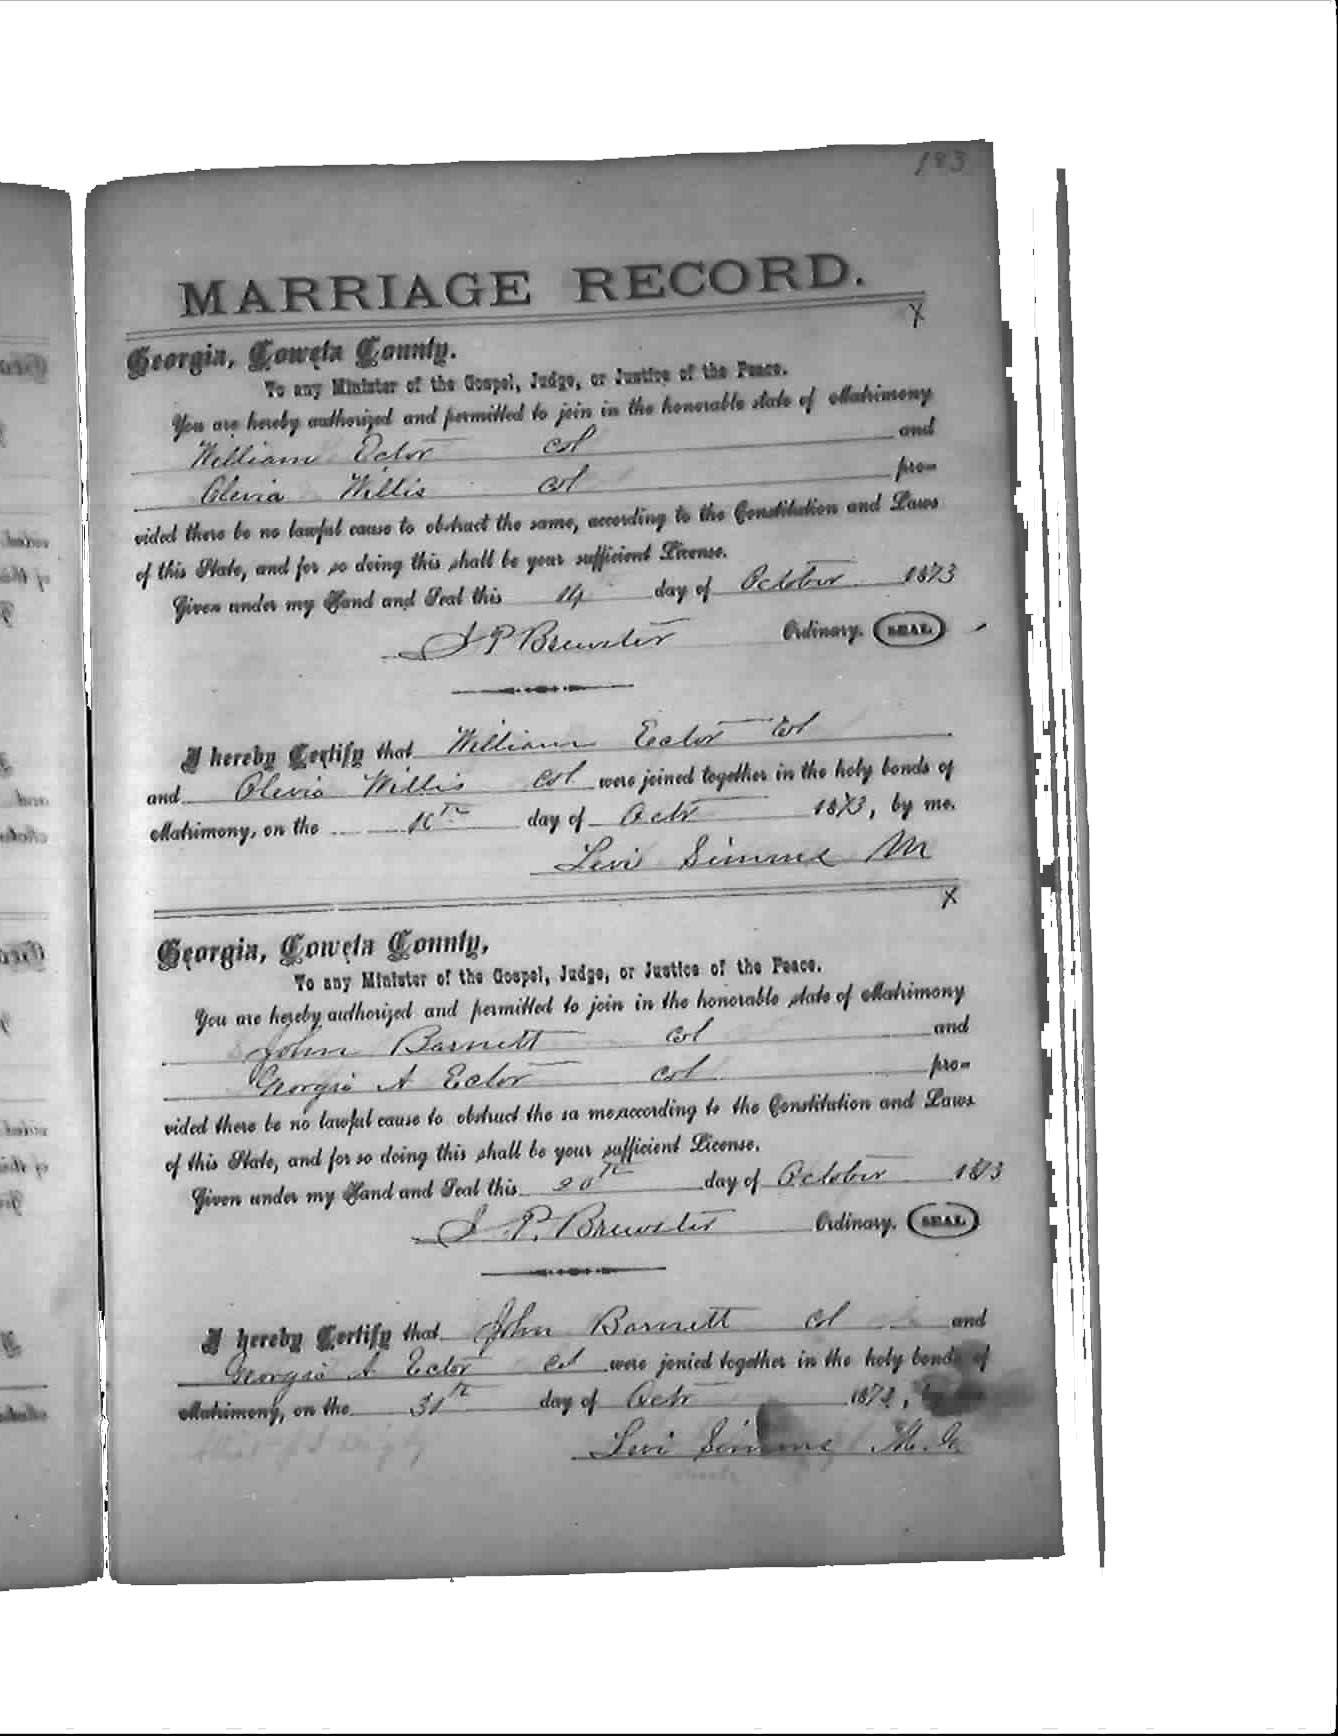 183
MARRIAGE RECORD.
X
Georgia, Coweta County.
To any Minister of the Gospel, Judge, or Justice of the Peace.
You are hereby authorized and permitted to join in the honorable state of Matrimony
William Ector col and
Olevia Willis col pro-
vided there be no lawful cause to obstruct the same, according to the Constitution and Laws
of this State, and for so doing this shall be your sufficient License.
Given under my Hand and Seal this 14 day of October 1873
J P Brewster Ordinary. SEAL
I hereby Certify that William Ector Col
and Olevia Willis col were joined together in the holy bonds of
Matrimony, on the day of Octr 1873, by me.
Levi Simms M
X
Georgia, Coweta County,
To any Minister of the Gospel, Judge, or Justice of the Peace.
You are hereby authorized and permitted to join in the honorable state of Matrimony
John Barnett col and
Georgia A Ector col pro-
vided there be no lawful cause to obstruct the sa me,according to the Constitution and Laws
of this State, and for so doing this shall be your sufficient License.
Given under my Hand and Seal this 20th day of October 1873
J. P. Brewster Ordinary. SEAL
I hereby Certify that John Barnett col and
Georgia A Ector col were jonied together in the holy bonds of
Matrimony, on the day of Octr 1873, by
Levi Simms M. G